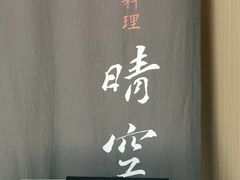 料理
晴空